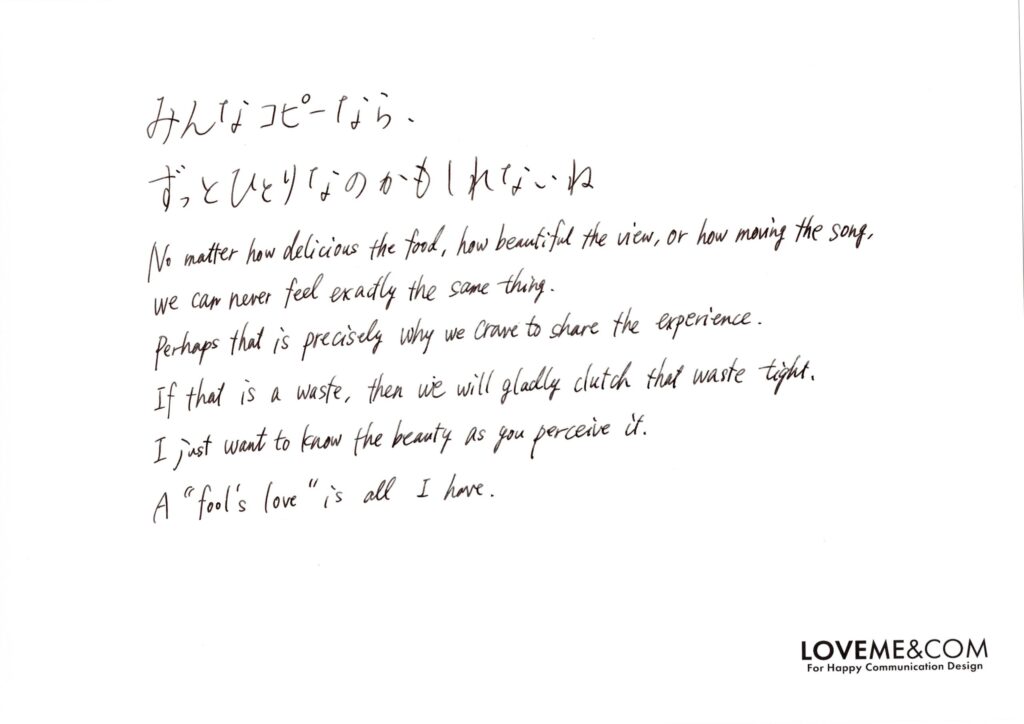 みんなコピーなら、
ずっとひとりなのかもしれないね
No matter how delicious the food, how beautiful the view, or how moving the song,
we can never feel exactly the same thing.
Perhaps that is precisely why we crave to share the experience.
If that is a waste, then we will gladly clutch that waste tight.
I just want to know the beauty as you perceive it.
A "fool's love" is all I have.
LOVEME&COM
For Happy Communication Design